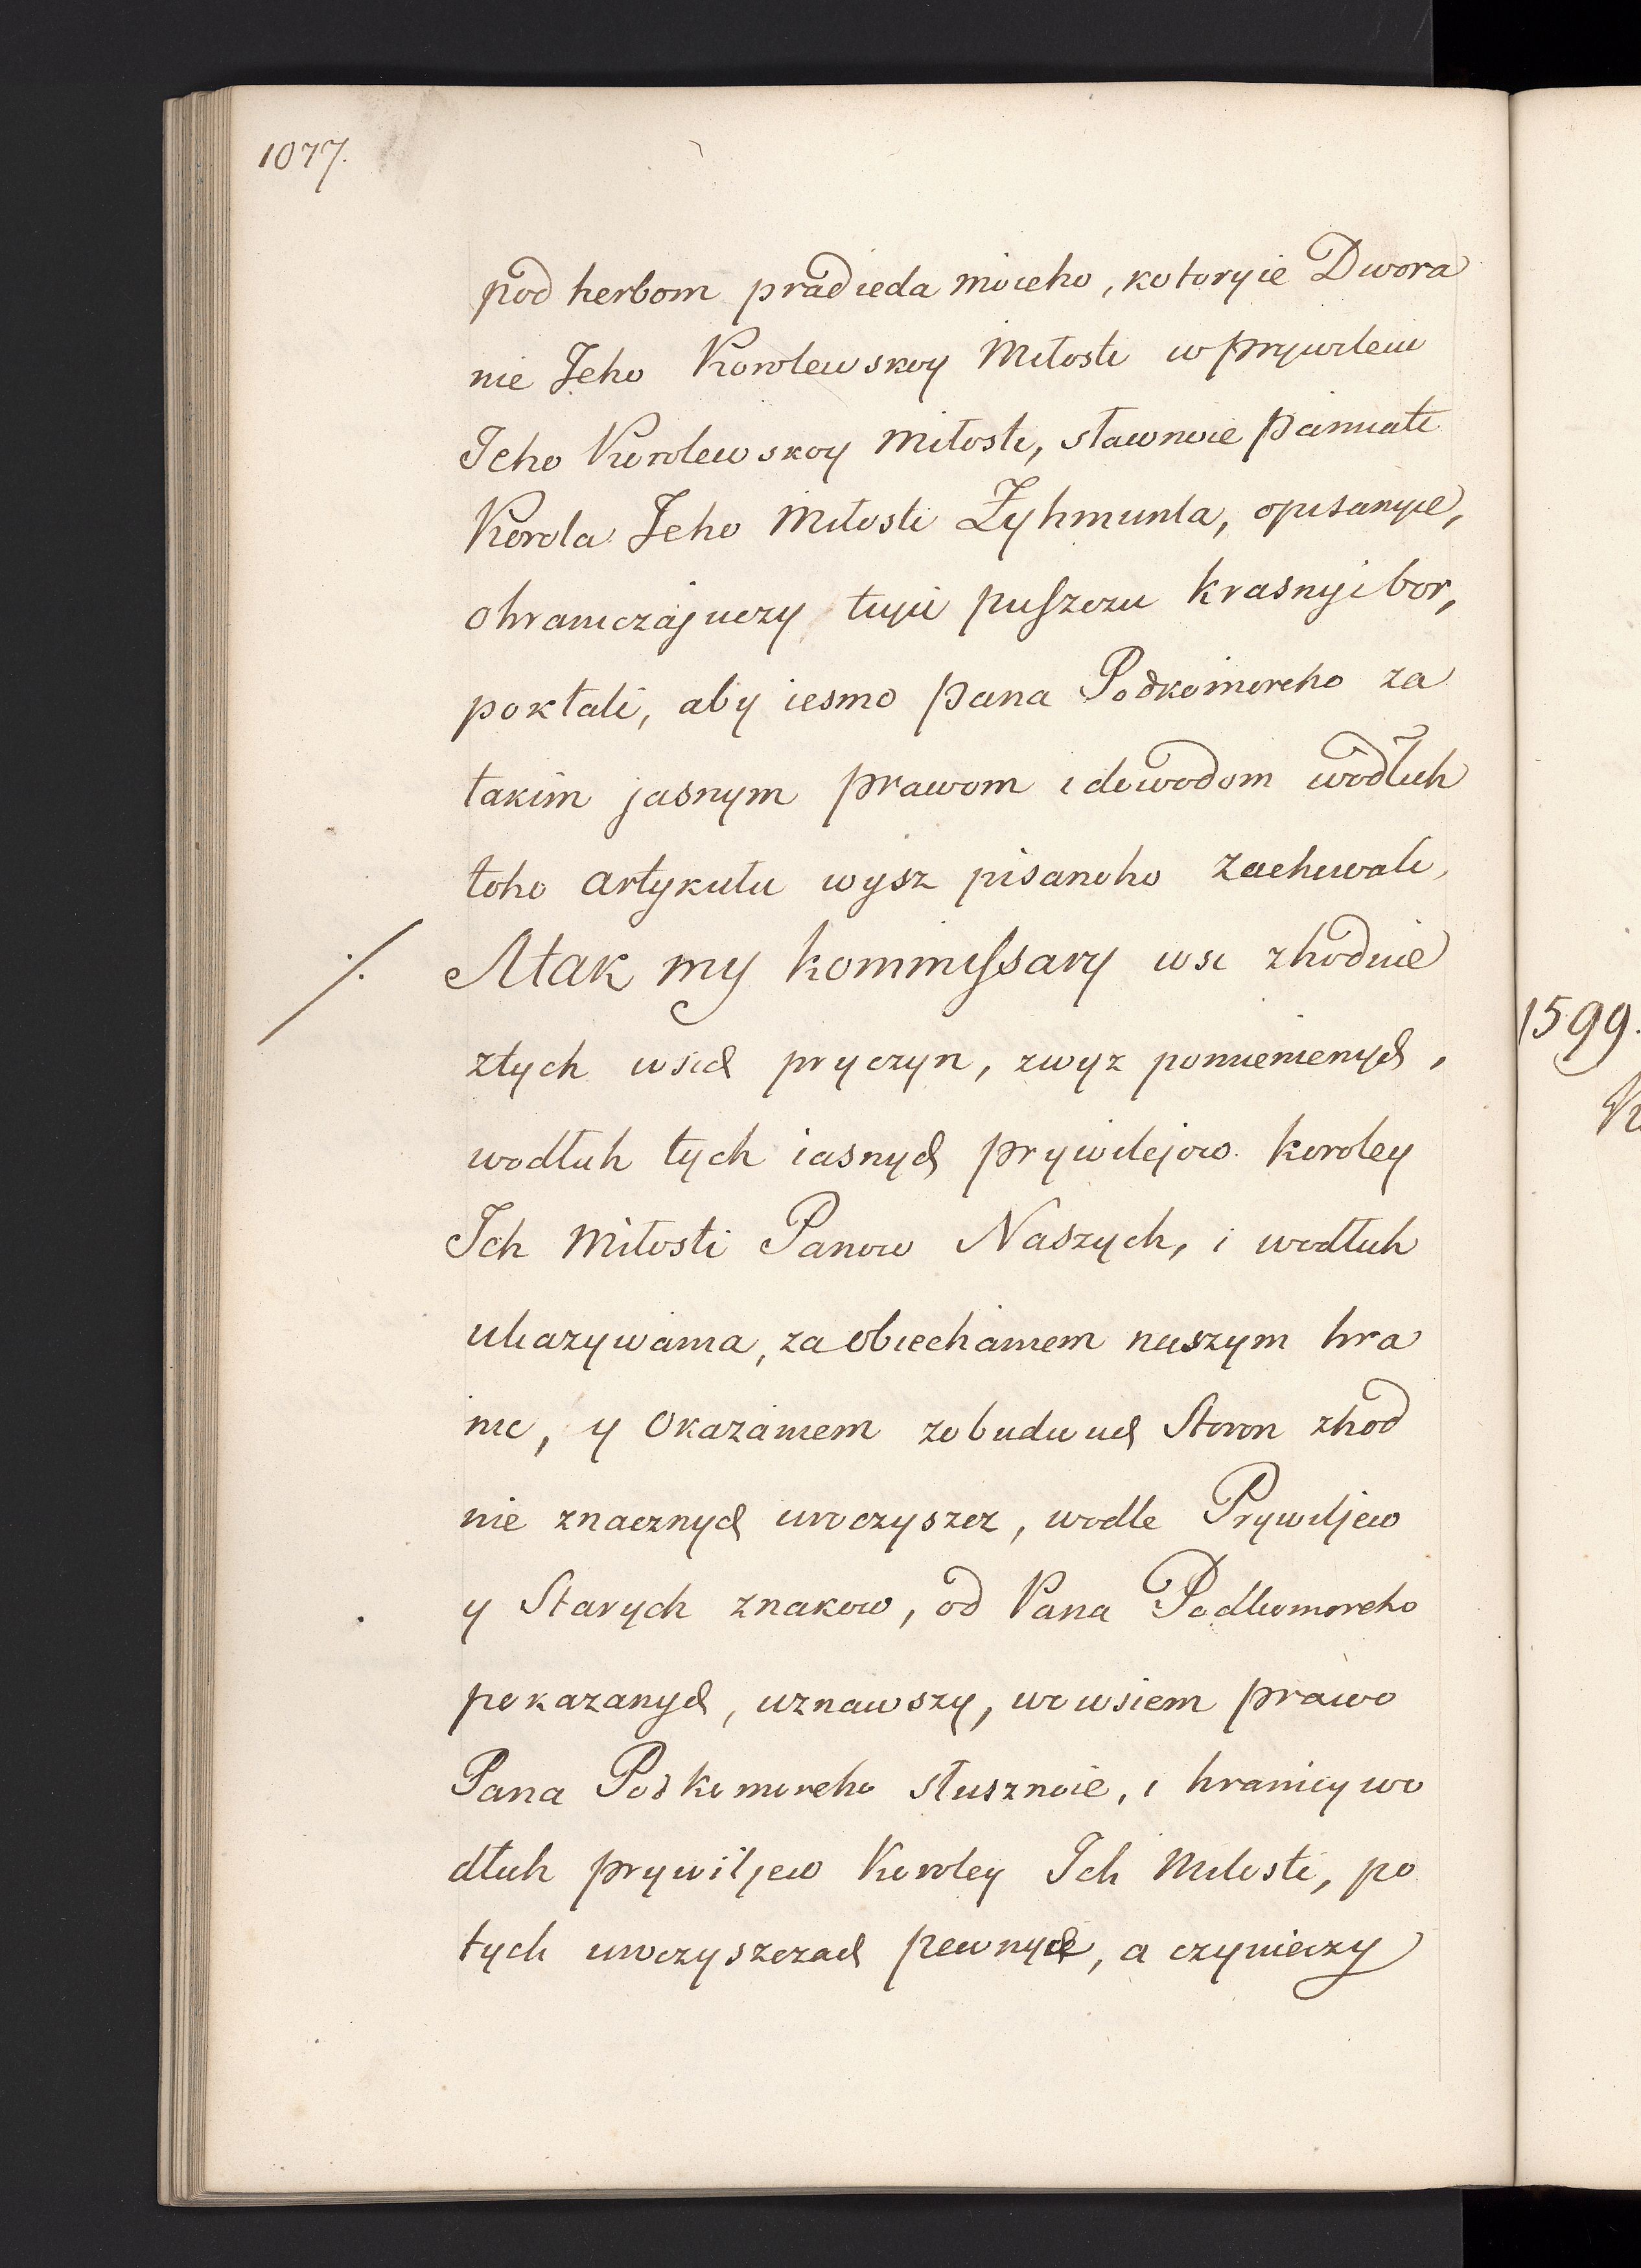 1077.
pod herbom pradieda moieho, kotoryie Dwora
nie Jeho Korolewskoy Miłosti w prywileiu
Jeho Korolewskoy Miłosti, sławnoie Pamiati
Korola Jeho Miłosti Zyhmunta, opisanyie,
ohraniczajuczy tuju puszczu krasnyi bor,
pokłali, aby iesmo Pana Podkomoreho za
takim jasnym prawom i dowodom wodłuh
toho artykułu wysz pisanoho zachowali,
./. A tak my kommissary wsi zhodnie
z tych wsich pryczyn, zwyz pomienienych,
wodłuh tych iasnych prywilejow koroley
Ich Miłosti Panow Naszych, i wodłuh
ukazywania, za obiechaniem naszym hra
nic, y okazaniem zobudwuch Storon zhod
nie znacznych uroczyszcz, wodle Prywiljew
y Starych znakow, od Pana Podkomoreho
pokazanych, uznawszy, wo wsiem prawo
Pana Podkomoreho słusznoie, i hranicy wo
dłuh prywiljew Koroley Ich Milosti, po
tych uroczyszczach pewnych, a czynieczy
1599.